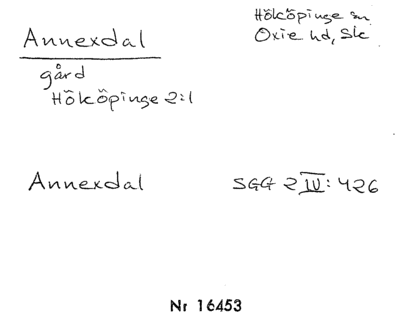 Annexdal
Hökköpinge sn
Oxie hd, Sk
gård
Hökköpinge 2:1
Annexdal SGG 2 IV: 426
Nr 16453